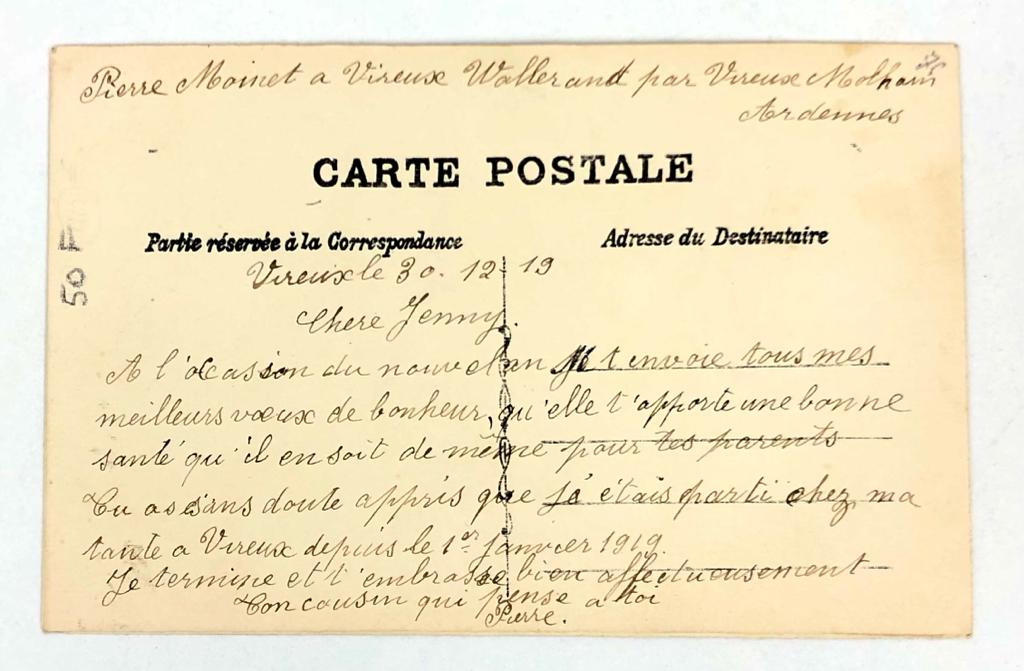 Pierre Moinet a Vireux Wallerand par Vireux Molhain
Ardennes
CARTE POSTALE
Partie réservée à la Correspondance
Adresse du Destinataire
50 F
Vireux le 30-12-19
Chere Jenny.
A l'ocasion du nouvel an je t envoie tous mes
meilleurs vœux de bonheur, qu'elle t'apporte une bonne
santé qu'il en soit de même pour tes parents
Tu as sans doute appris que j'étais parti chez ma
tante a Vireux depuis le 1er Janvier 1919.
Je termine et t'embrasse bien affectueusement
Ton cousin qui pense a toi
Pierre.